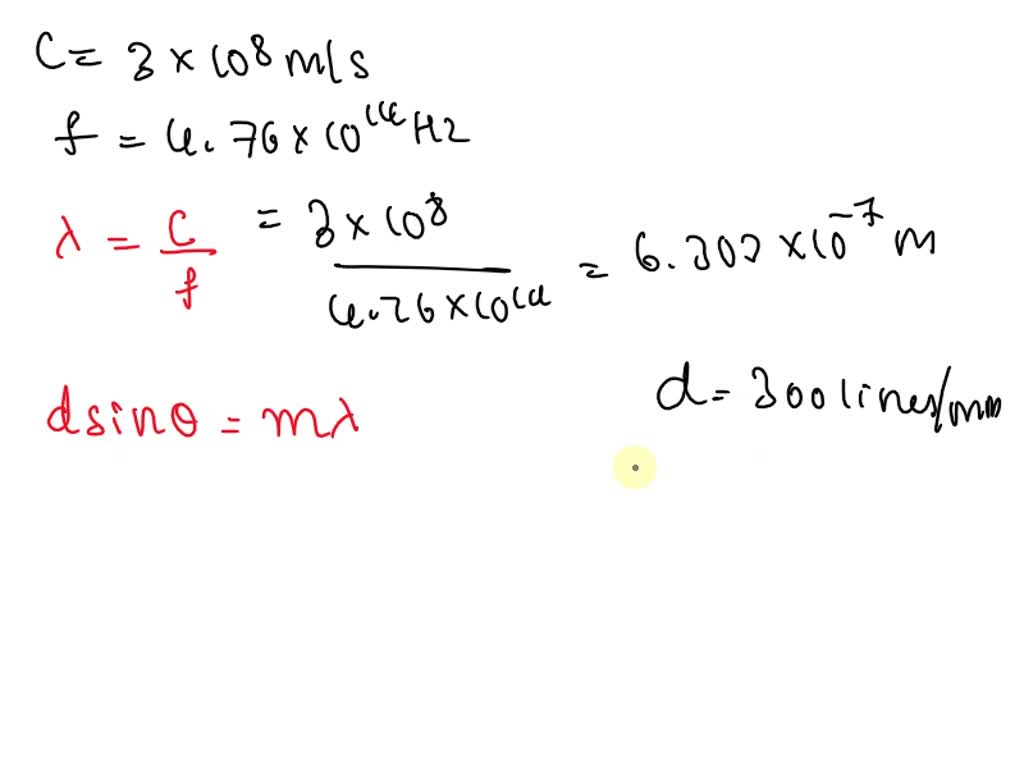 C = 3 × 10⁸ m/s
f = 4.76 × 10¹⁴ Hz
λ = C/f = 3 × 10⁸ / 4.76 × 10¹⁴ = 6.303 × 10⁻⁷ m
d = 300 lines/mm
d sinθ = mλ